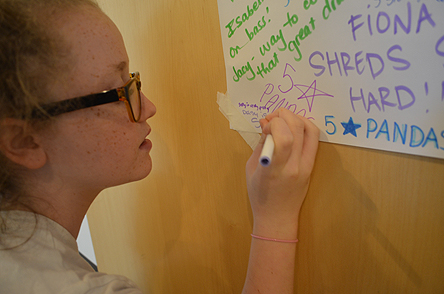 Isabel
on bass!
Jacy way to
that great
FIONA
SHREDS
HARD!!
5
PANDAS
5★PANDAS